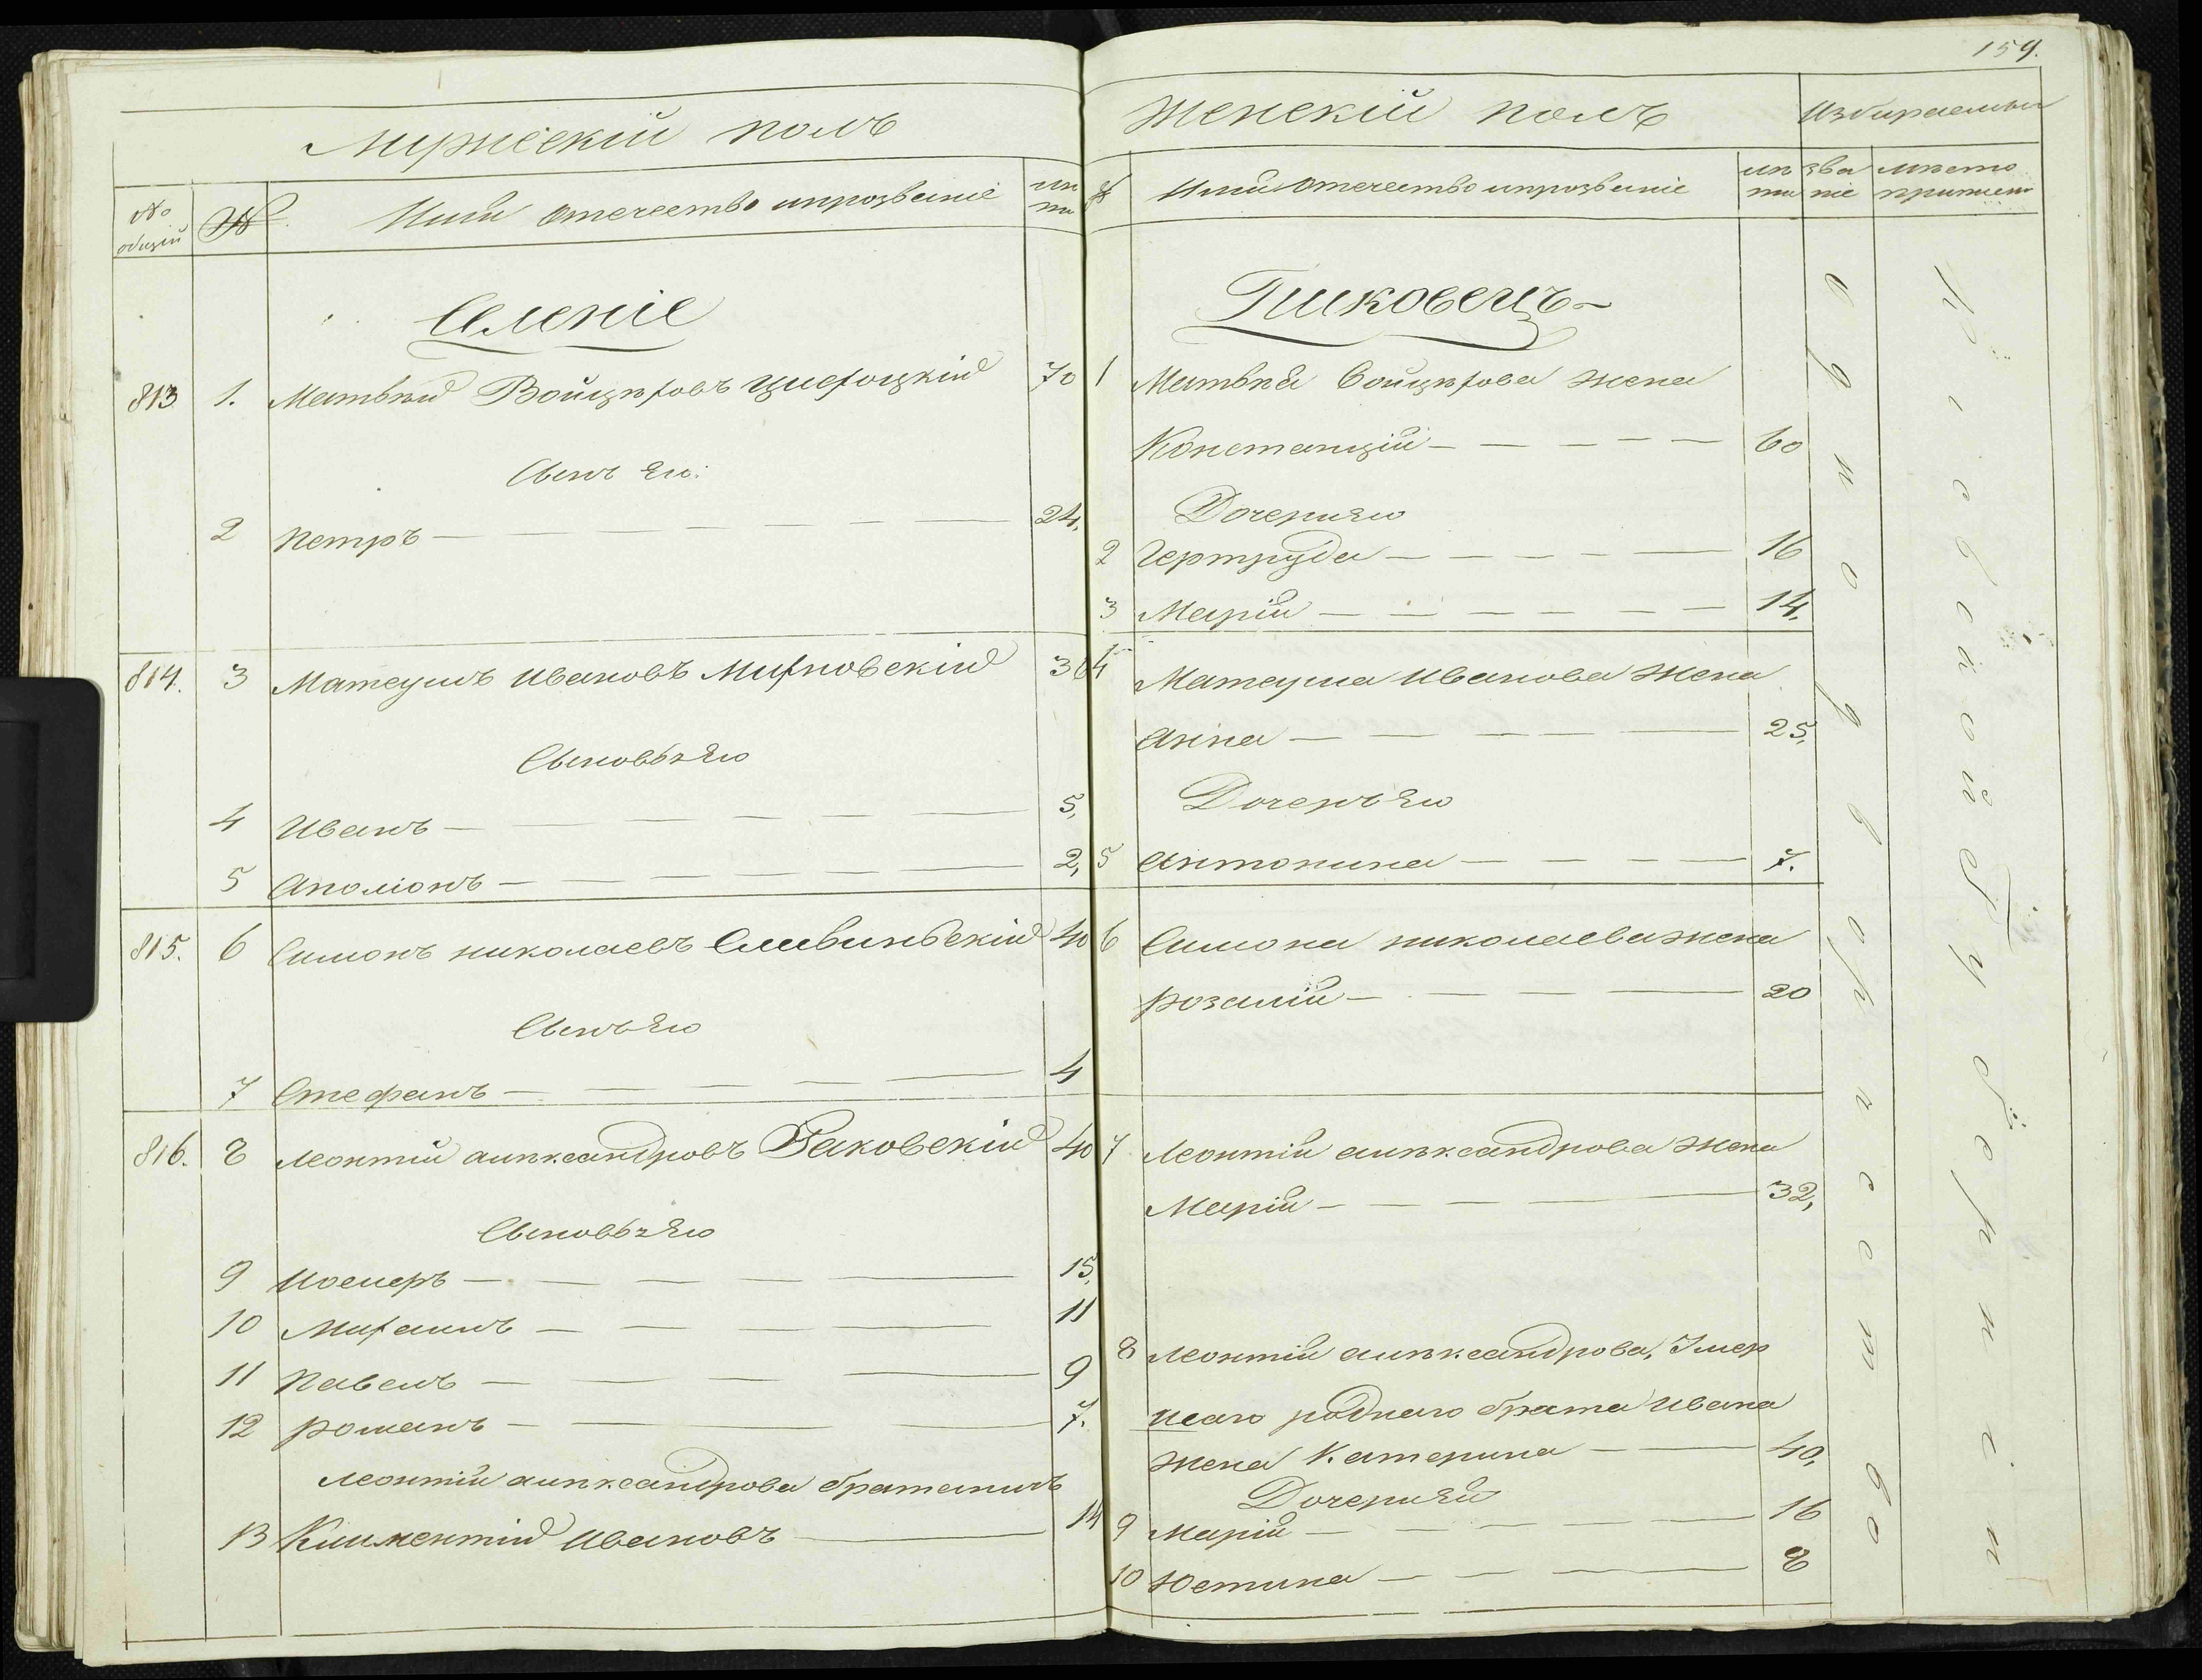 159.
Мужескій полъ
№ общій
№
Имя отечество и прозваніе
лѣта
Селеніе
813 1. Матвѣй Войцѣховъ 70
Сынъ Его:
2 Петръ — 24,
814. 3 Матеушъ Ивановъ Михновскій 36
Сыновья Его
4 Иванъ — 5,
5 Аполіонъ — 2,
815. 6 Симонъ Николаевъ Сливинскій 40
Сынъ Его
7 Стефанъ — 4
816. 8 Леонтій Алѣксандровъ Раковскій 40
Сыновья Его
9 — 15,
10 Михаилъ — 11
11 Павелъ — 9
12 Романъ — 7.
Леонтія Алѣксандрова братаничъ
13 Климентій Ивановъ — 14
Женскій полъ
Избираемыя
№
Имя отечество и прозваніе
лѣта
званіе
мѣсто приписки
Пиковецъ
1 Матвѣя Войцѣхова жена
Констанція — 60
Дочери Его
2 Гертруда — 16
3 Марія — 14,
4 Матеуша Иванова жена
Анна — 25,
Дочерь Его
5 Антонина — 7.
6 Симона Николаева жена
Розалія — 20
7 Леонтія Алѣксандрова жена
Марія — 32,
8 Леонтія Алѣксандрова, Умер
шаго роднаго брата Ивана
жена Катерина — 40,
Дочери Ея
9 Марія — 16
10 Юстина — 8
Однодворчество
Кіевской Губерніи